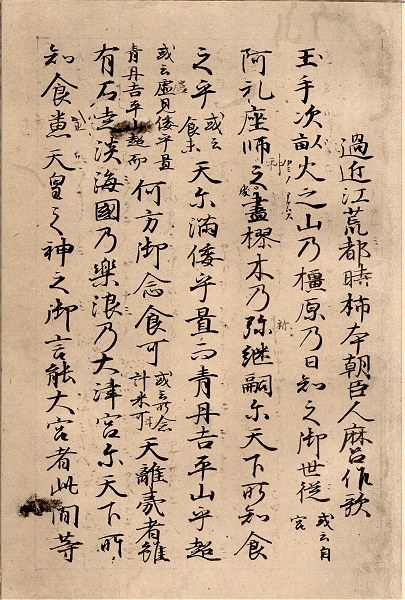 過近江荒都時柿本朝臣人麻呂作歌
玉手次畝火之山乃橿原乃日知之御世従 或云自宮
阿礼座師神之盡樛木乃弥継嗣尓天下所知食
之乎 或云食来 天尓満倭乎置而青丹吉平山乎超
或云虚見倭乎置青丹吉平山越而 何方御念食可 或云所念計米可 天離夷者雖
有石走淡海國乃樂浪乃大津宮尓天下所
知食兼天皇之神之御言能大宮者此間等